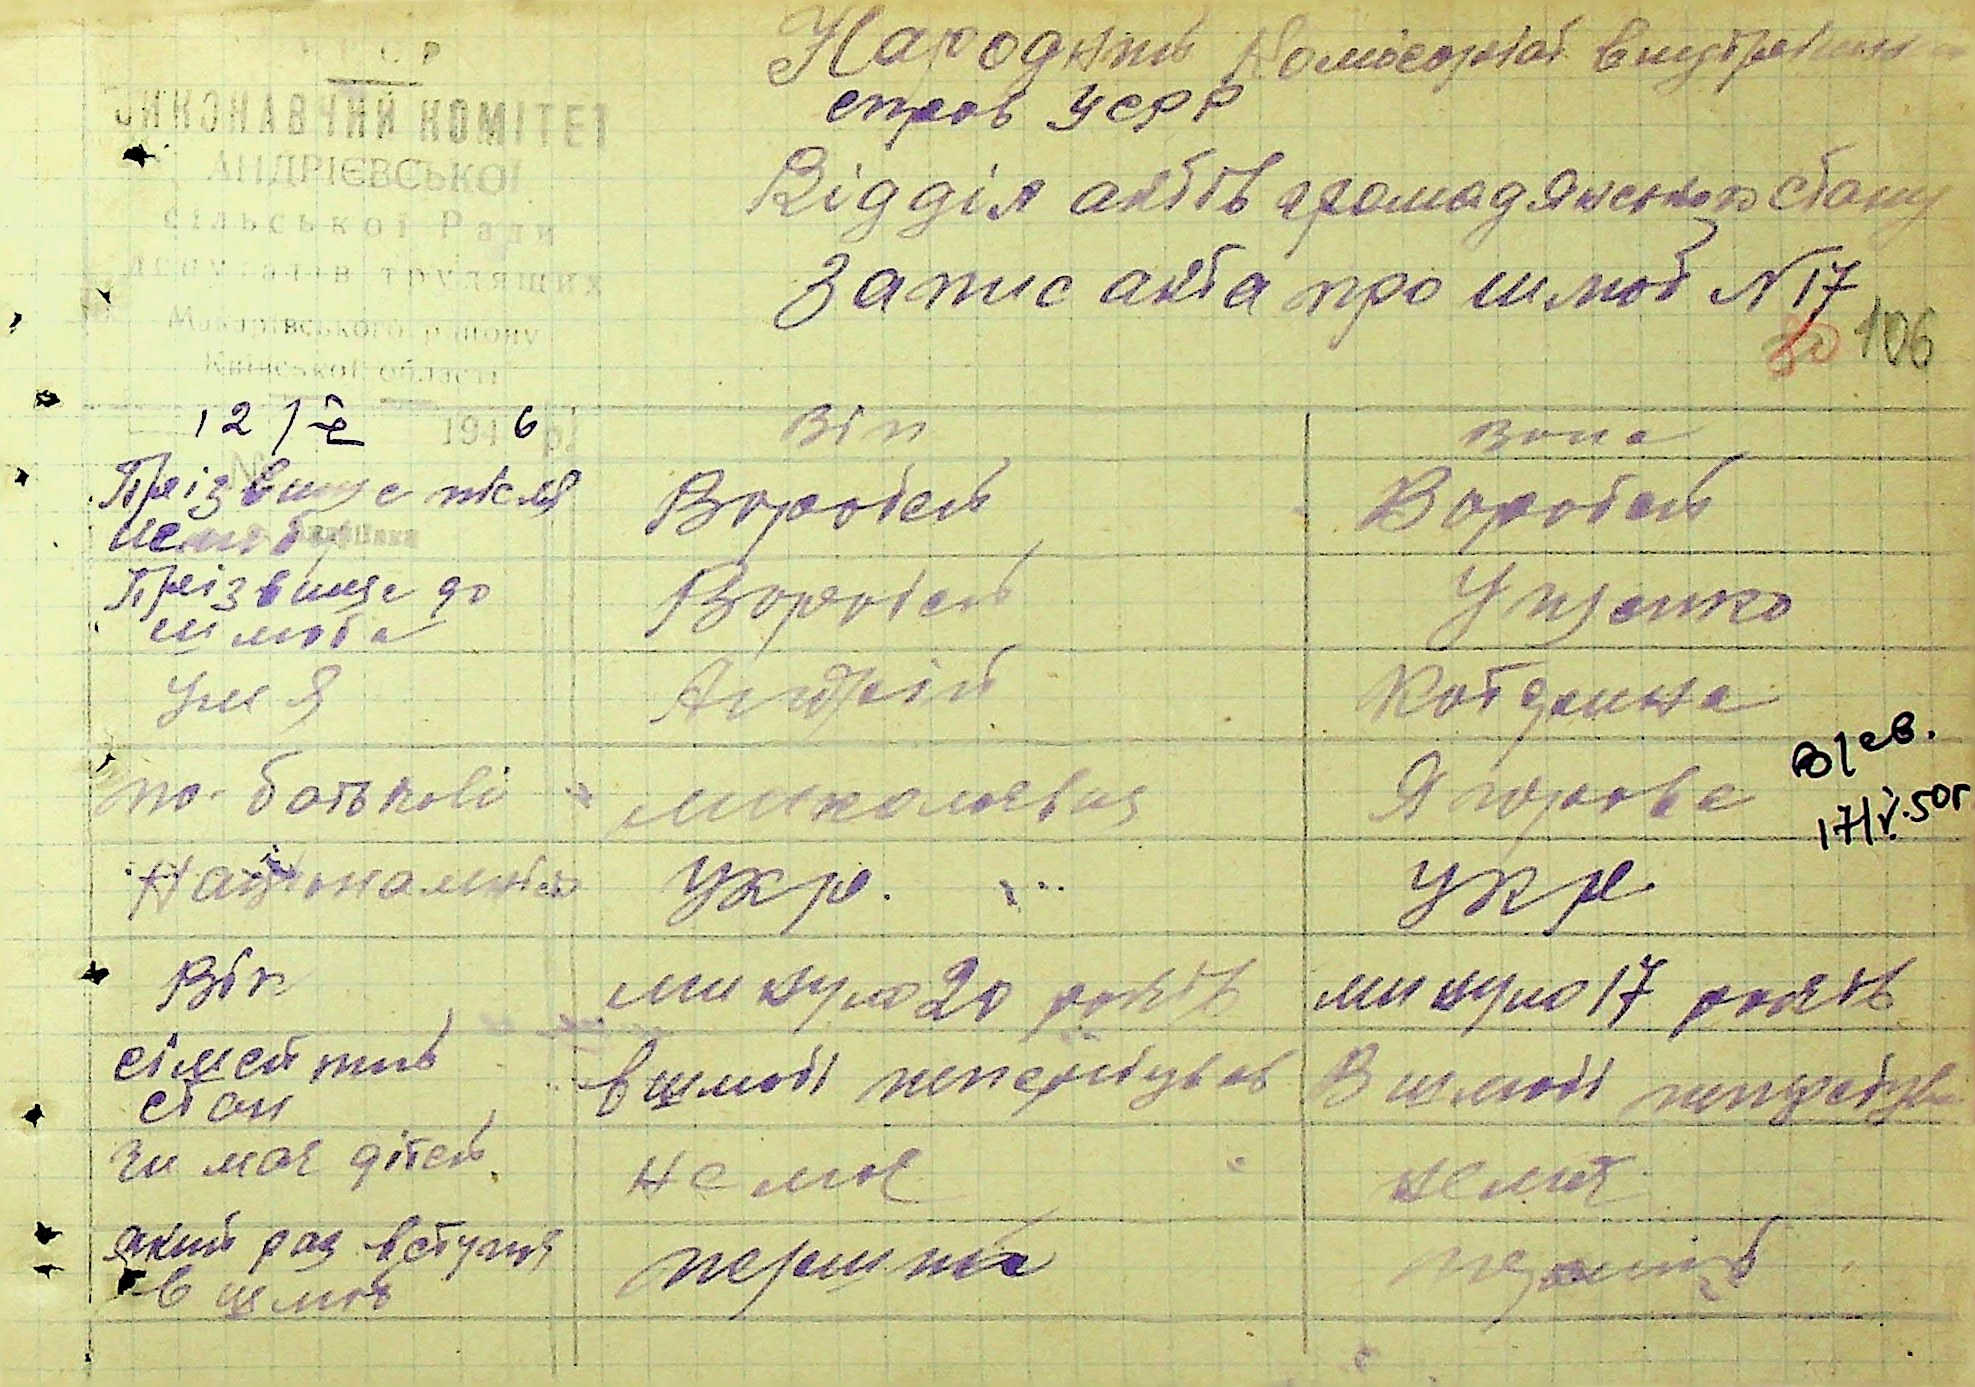 Народний Комісаріат внутрішни
справ УСРР
Відділ актів громадянського стану
Запис акта про шлюб N 17
30 106
ВИКОНАВЧИЙ КОМІТЕТ
АНДРІЄВСЬКОЇ
сільської Ради
депутатів трудящих
Макарівського району
Київської області
12/ 1946 р.
Він Вона
Прізвище після шлюбу Воробей Воробей
Прізвище до шлюба Воробей Ущенко
Имя Андрій
по батькові миколаевич Ягорова
в/св.
17/V.50г
Національність Укр. Укр
Вік минуло 20 років минуло 17 років
сімейний стан в шлюбі непербував В шлюбі
Чи має дітей не має немає
який раз вступає в шлюб перший перший